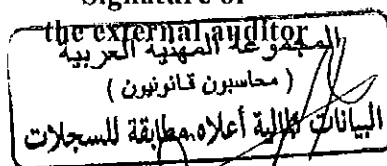 Signature of
the external auditor
المجموعة المهنية العربية
( محاسبون قانونيون )
البيانات المالية أعلاه مطابقة للسجلات